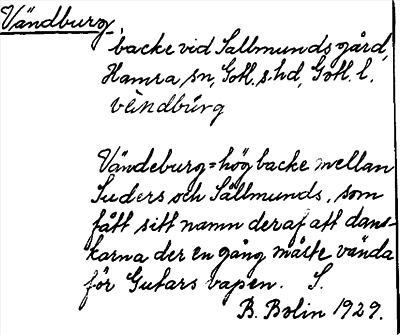 Vändburg,
backe vid Sallmunds gård,
Hamra sn, Gotl. s. hd, Gotl. l.
vèndbúrg
Vändeburg = hög backe mellan
Suders och Sallmunds, som
fått sitt namn deraf att dans-
karna der en gång måste vända
för Gutars vapen. S.
B. Bolin 1929.